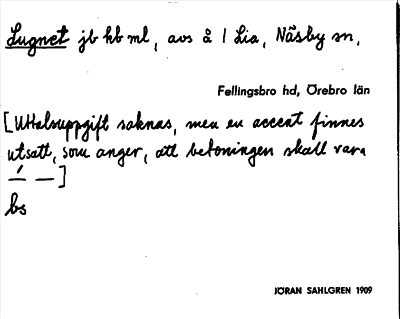 Lugnet jb kb ml, avs å 1 Lia, Näsby sn,
Fellingsbro hd, Örebro län
[Uttalsuppgift saknas, men en accent finnes
utsatt, som anger, att betoningen skall vara
–́ –]
bs
JÖRAN SAHLGREN 1909